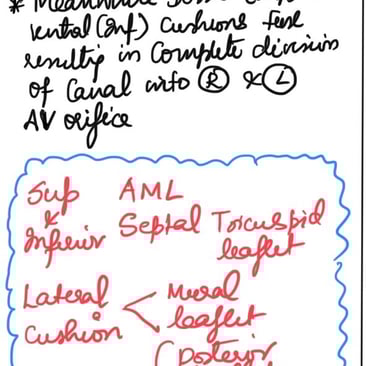 * Meanwhile
ventral (Inf) cushions fuse
resulting in complete division
of Canal into Ⓡ & Ⓛ
AV orifice
Sup AML
&
Inferior Septal Tricuspid
leaflet
Lateral < Mural
Cushion leaflet
(Posterior